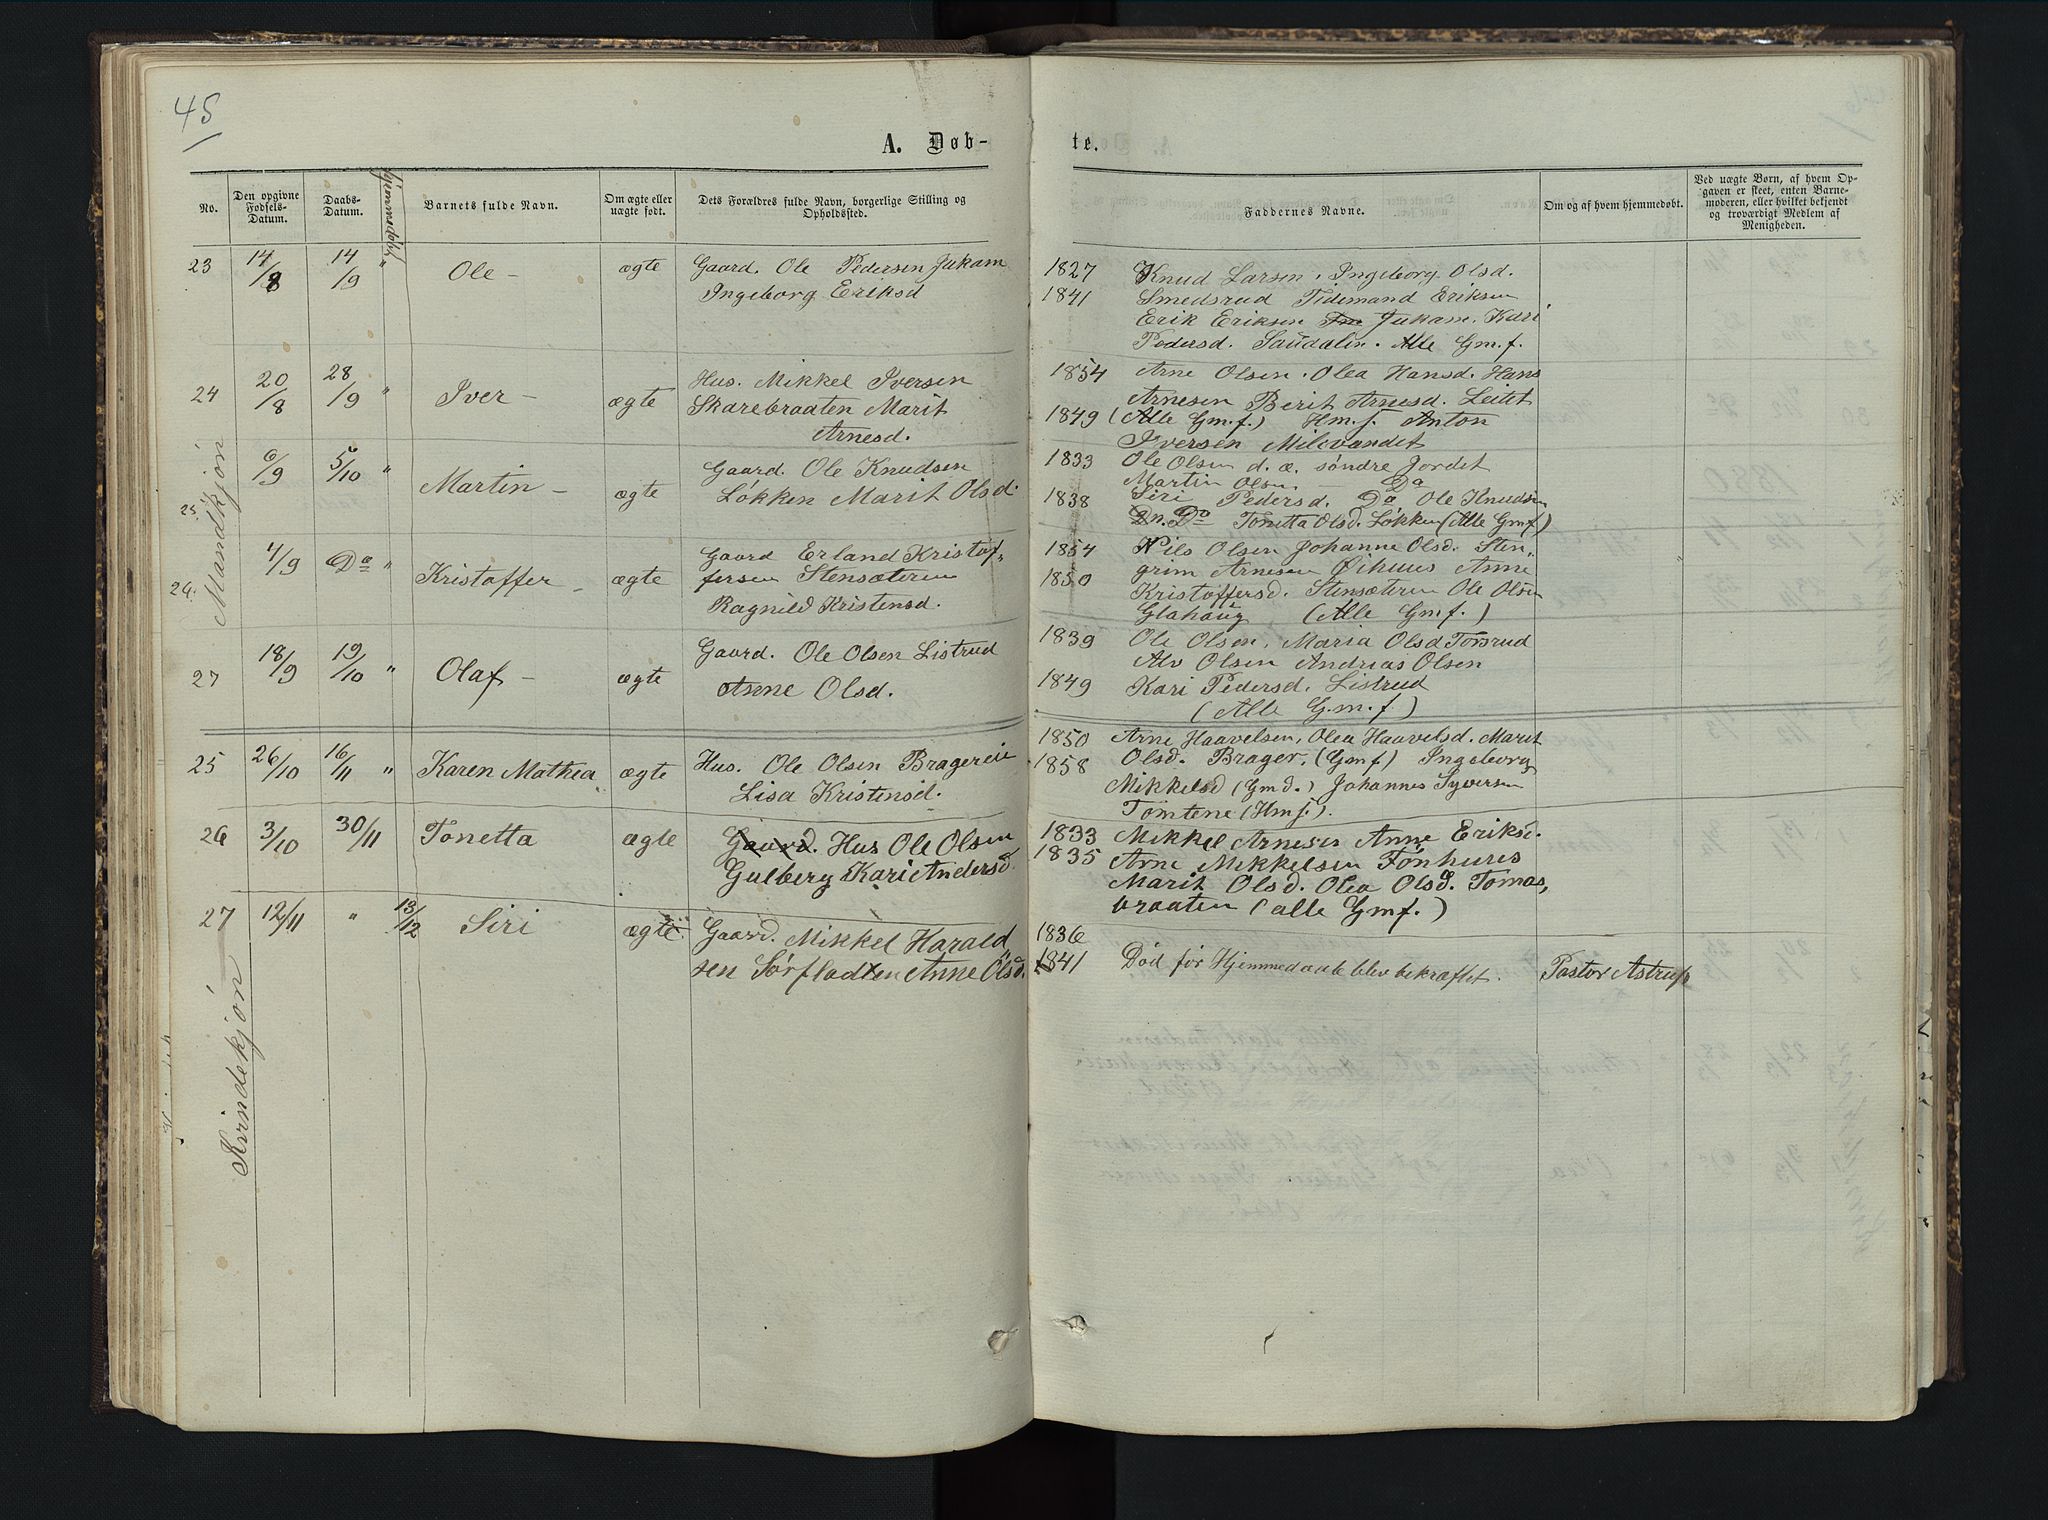 45
A. Døb-
No.
Den opgivne Fødsels-Datum.
Daabs-Datum.
Hjemmedøbt
Barnets fulde Navn.
Om ægte eller uægte født.
Dets Forældres fulde Navn, borgerlige Stilling og Opholdssted.
Mandkjøn
23 14/8 14/9 " Ole - ægte Gaard. Ole Pedersen Jukam
Ingeborg Eriksd
24 20/8 28/9 " Iver - ægte Hus. Mikkel Iversen
Skarebraaten Marit
Arnesd.
25. 6/9 5/10 " Martin - ægte Gaard. Ole Knudsen
Løkken Marit Olsd.
26. 4/9 Do " Kristoffer - ægte Gaard Erland Kristof-
fersen Stensæteren
Ragnild Kristensd.
27 18/9 19/10 " Olaf - ægte Gaard. Ole Olsen Listrud
Anne Olsd.
Kvindekjøn
25 26/10 16/11 " Karen Mathea ægte Hus. Ole Olsen Bragereie
Lisa Kristensd.
26 3/10 30/11 Tonetta ægte Gaard. Hus Ole Olsen
Gulberg Kari Andersd.
27 12/11 " 13/12 Siri ægte Gaard. Mikkel Harald
sen Sørfladten Anne Olsd.
te.
Faddernes Navne.
Om og af hvem hjemmedøbt.
Ved uægte Børn, af hvem Op-
gaven er skeet, enten Barne-
moderen, eller hvilket bekjendt
og troværdigt Medlem af
Menigheden.
1827 Knud Larsen. Ingeborg Olsd.
1841 Smedsrud Tidemand Eriksen
Erik Eriksen Jukam. Kari
Pedersd. Saudalen. Alle Gm.f.
1854 Arne Olsen. Olea Hansd. Hans
Arnesen Berit Arnesd. Leitet
1849 (Alle Gm.f.) Hm.f. Anton
Iversen Milevandet
1833 Ole Olsen d. æ. søndre Jordet
Martin Olsn. — Do
1838 Siri Pedersd. Do Ole Knudsen
Dn. Do Tonetta Olsd. Løkken (Alle Gmf)
1854 Nils Olsen Johanne Olsd. Sten-
1850 grim Arnesen Øihuus Anne
Kristoffersd. Stensæteren Ole Olsen
Glahaug (Alle Gmf.)
1839 Ole Olsen, Maria Olsd Torsrud
Alv Olsen Andrias Olsen
1849 Kari Pedersd. Listrud
(Alle G.m.f)
1850 Arne Haavelsen, Olea Haavelsd. Marit
1858 Olsd. Brager, (Gmf) Ingeborg
Mikkelsd (Gmd.) Johannes Syversen
Tomtene (Hmf).
1833 Mikkel Arnesen Anne Eriksd.
1835 Arne Mikkelsen Fønhuus
Marit Olsd. Olea Olsd. Tomas,
braaten (alle Gmf.)
1836
1841 Død før Hjemmedaabe blev bekræftet. Pastor Astrup